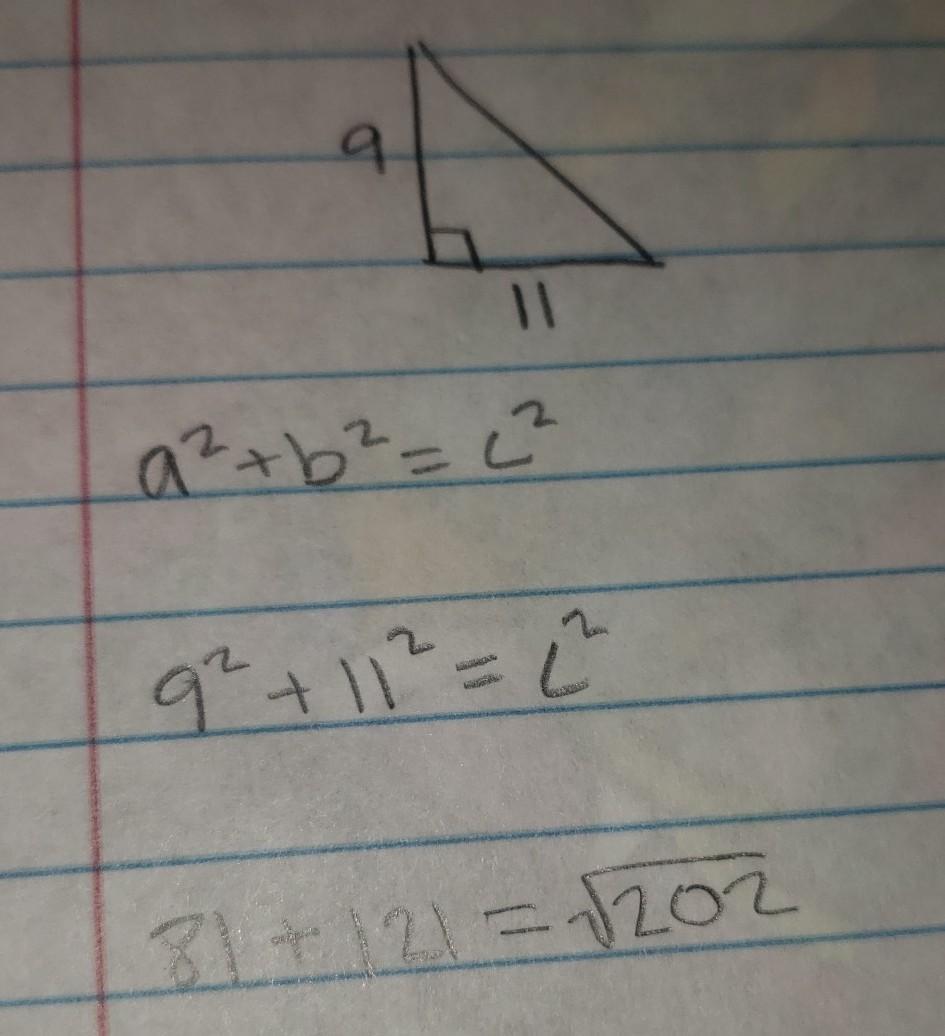 9
11
a² + b² = c²
9² + 11² = c²
81 + 121 = √202